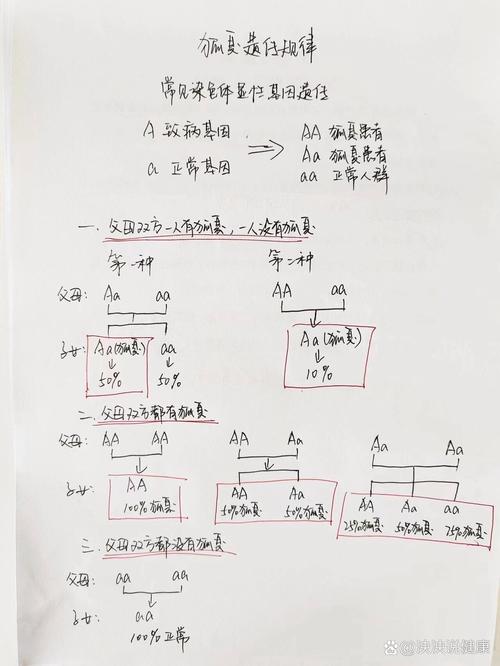 狐臭遗传规律
常见染色体显性基因遗传
A 致病基因 ⇒ AA 狐臭患者
Aa 狐臭患者
a 正常基因 aa 正常人群
一、父母双方一人有狐臭，一人没有狐臭
第一种 第二种
父母: Aa aa AA aa
子女: Aa(狐臭) aa Aa(狐臭)
50% 50% 10%
二、父母双方都有狐臭
父母: AA AA AA Aa Aa Aa
子女: AA AA Aa AA Aa aa
100%狐臭 50%狐臭 50%狐臭 25%狐臭 50%狐臭 75%狐臭
三、父母双方都没有狐臭
父母: aa aa
子女: aa
100%正常
泱泱说健康